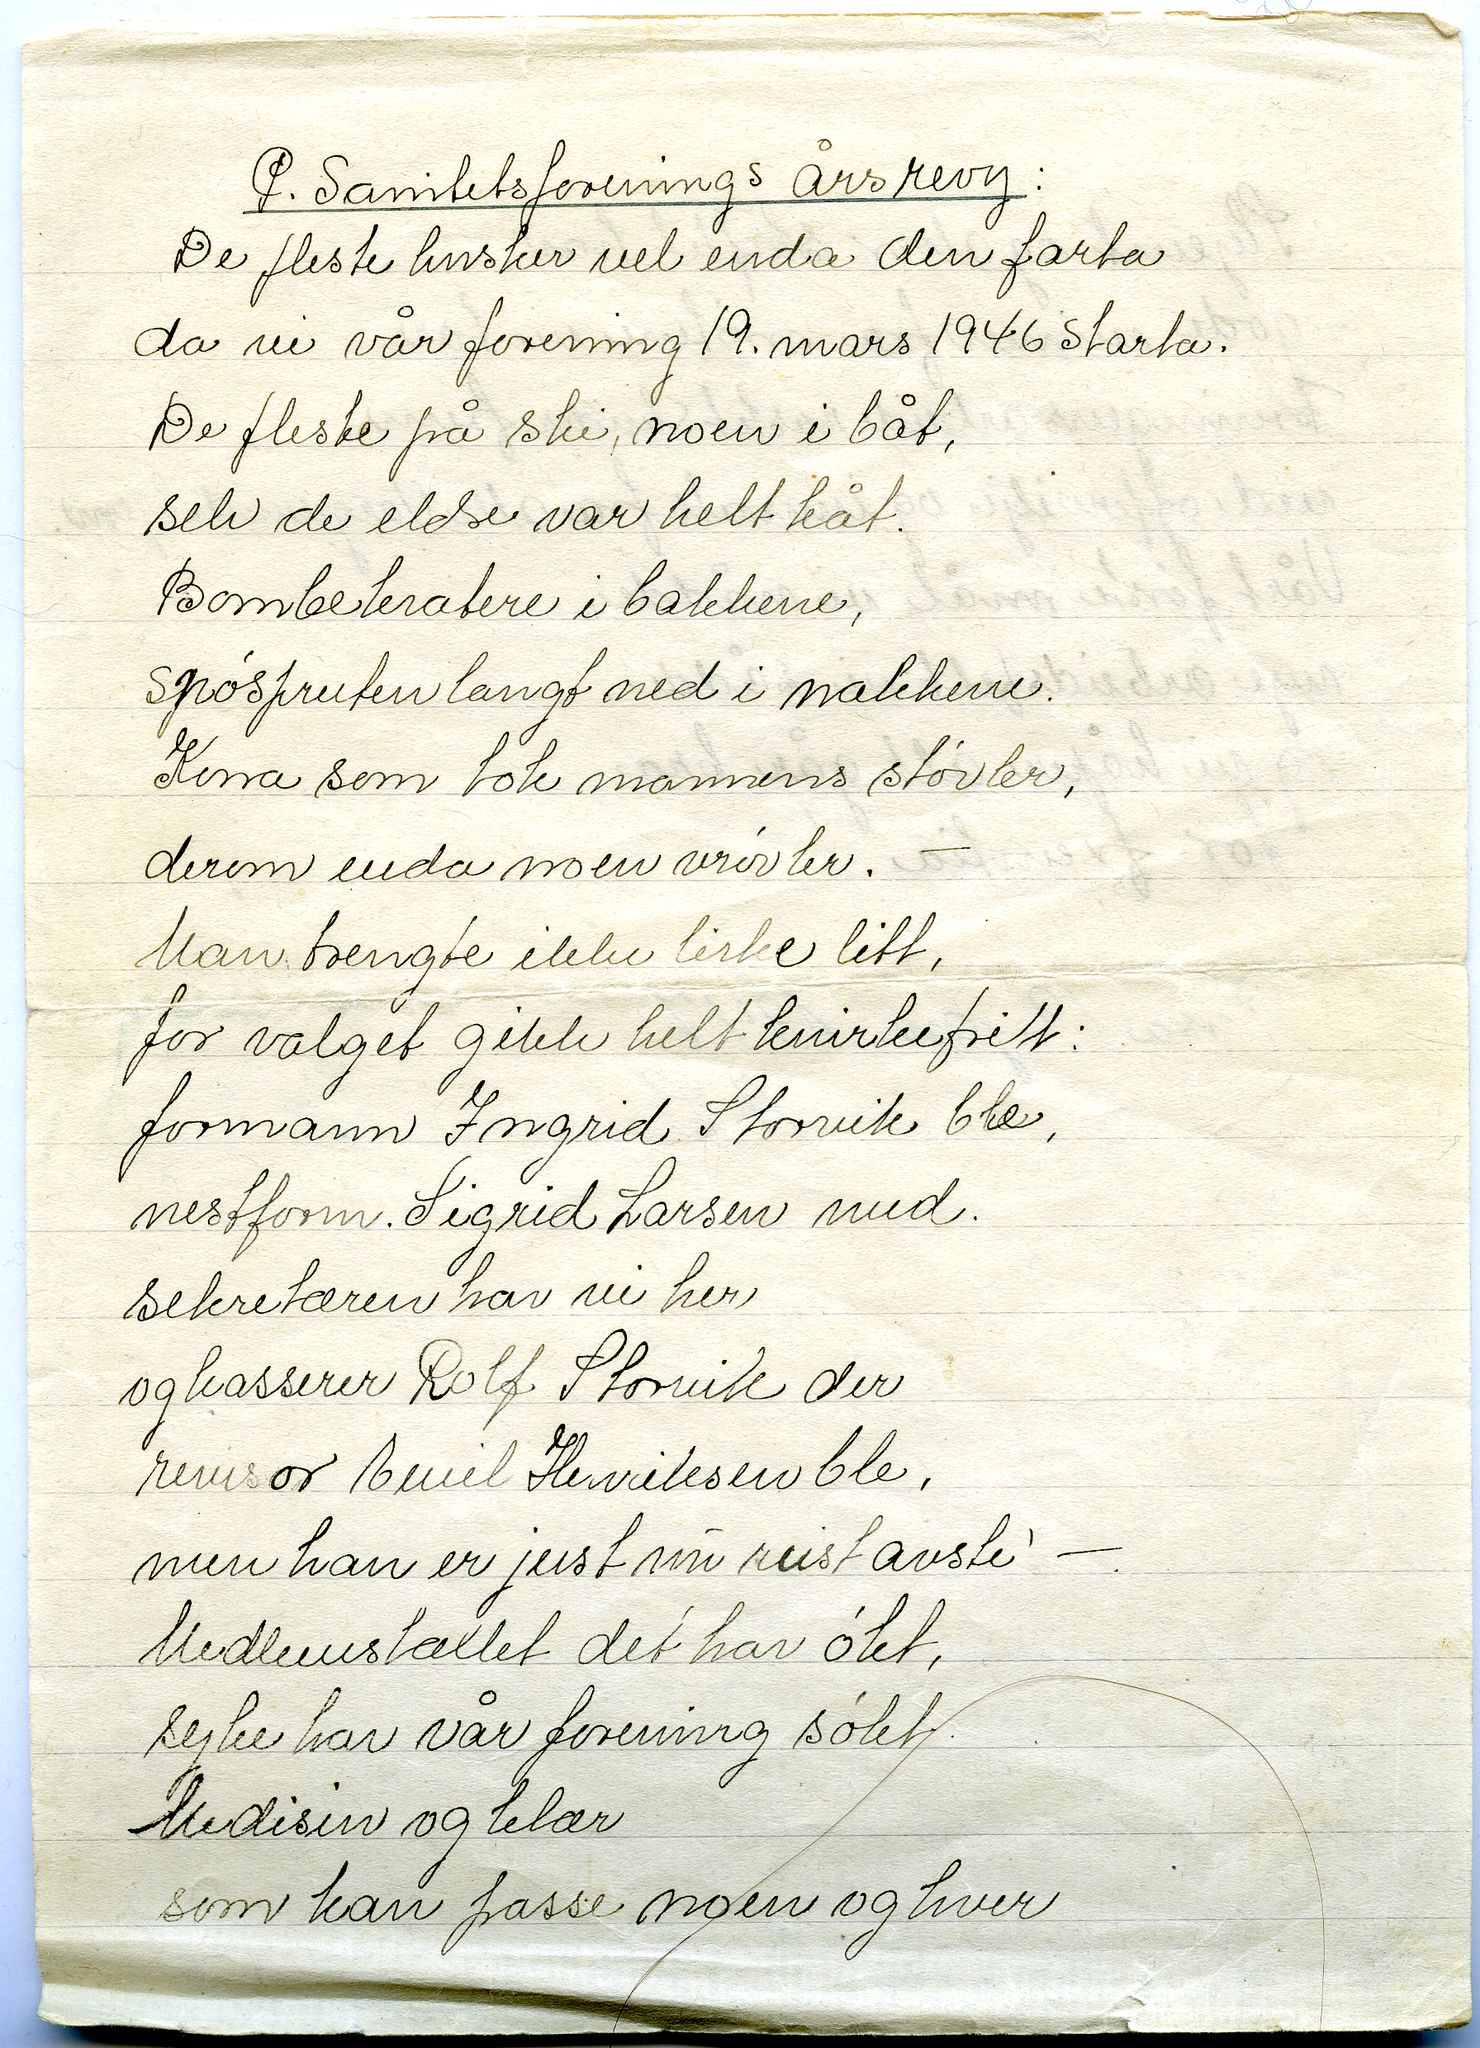 P. Sanitetsforenings årsrevy:
De fleste husker vel enda den farta
da vi vår forening 19. mars 1946 starta.
De fleste på ski, noen i båt,
selv de eldse var helt kåt.
Bombekratere i bakkene,
snóspruten langt ned i nakkene.
Kona som tok mannens stóvler,
derom enda noen vróvler. —
Man trengte ikke lirke litt,
for valget gikk helt knirkefritt:
formann Ingrid Storvik ble,
nestform. Sigrid Larsen med.
sekretæren har vi her
og kasserer Rolf Storvik der
revisor Emil Henriksen ble,
men han er just nu reist avsté —
Medlemstallet dét har ókt,
syke har vår forening sókt.
Medisin og klær
som kan passe noen og hver